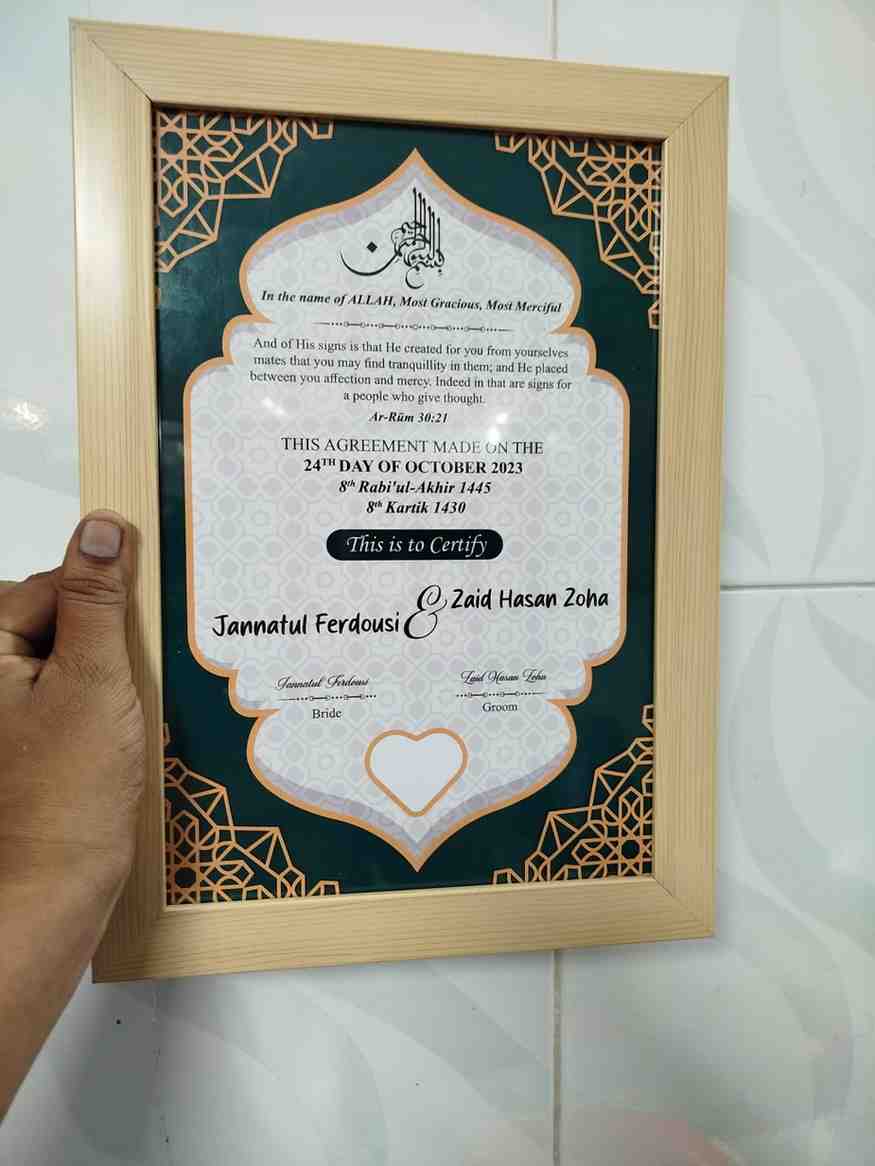 بسم الله الرحمن الرحيم
In the name of ALLAH, Most Gracious, Most Merciful
And of His signs is that He created for you from yourselves
mates that you may find tranquillity in them; and He placed
between you affection and mercy. Indeed in that are signs for
a people who give thought.
Ar-Rūm 30:21
THIS AGREEMENT MADE ON THE
24TH DAY OF OCTOBER 2023
8th Rabi'ul-Akhir 1445
8th Kartik 1430
This is to Certify
Jannatul Ferdousi & Zaid Hasan Zoha
Jannatul Ferdousi Zaid Hasan Zoha
Bride Groom